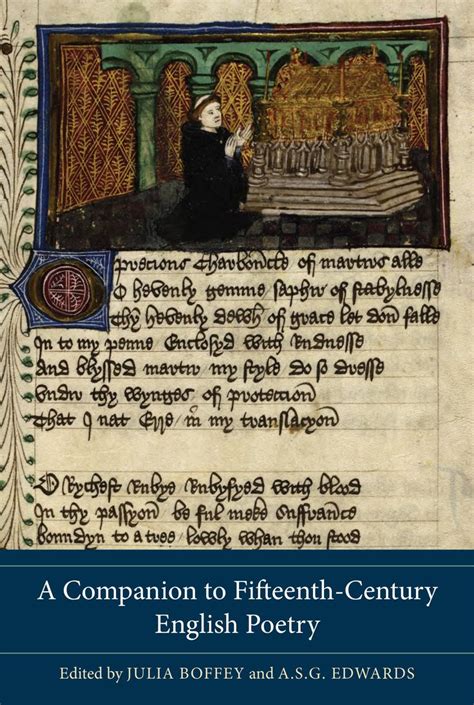 O precious Charboncle of martirs alle
O hevenly gemme saphir of stabylnesse
Thy hevenly dewh of grace let don falle
In to my penne Enclosyd with Rudnesse
And blyssed martir my style do so dresse
Undir thy wynges of proteccion
That I nat Erre in my translacyon
O Rychest Rubye Rubyfyed with blood
In thy passyon be ful meke Suffrance
Bonndyn to a tree lowly whan thou stood
A Companion to Fifteenth-Century
English Poetry
Edited by JULIA BOFFEY and A.S.G. EDWARDS